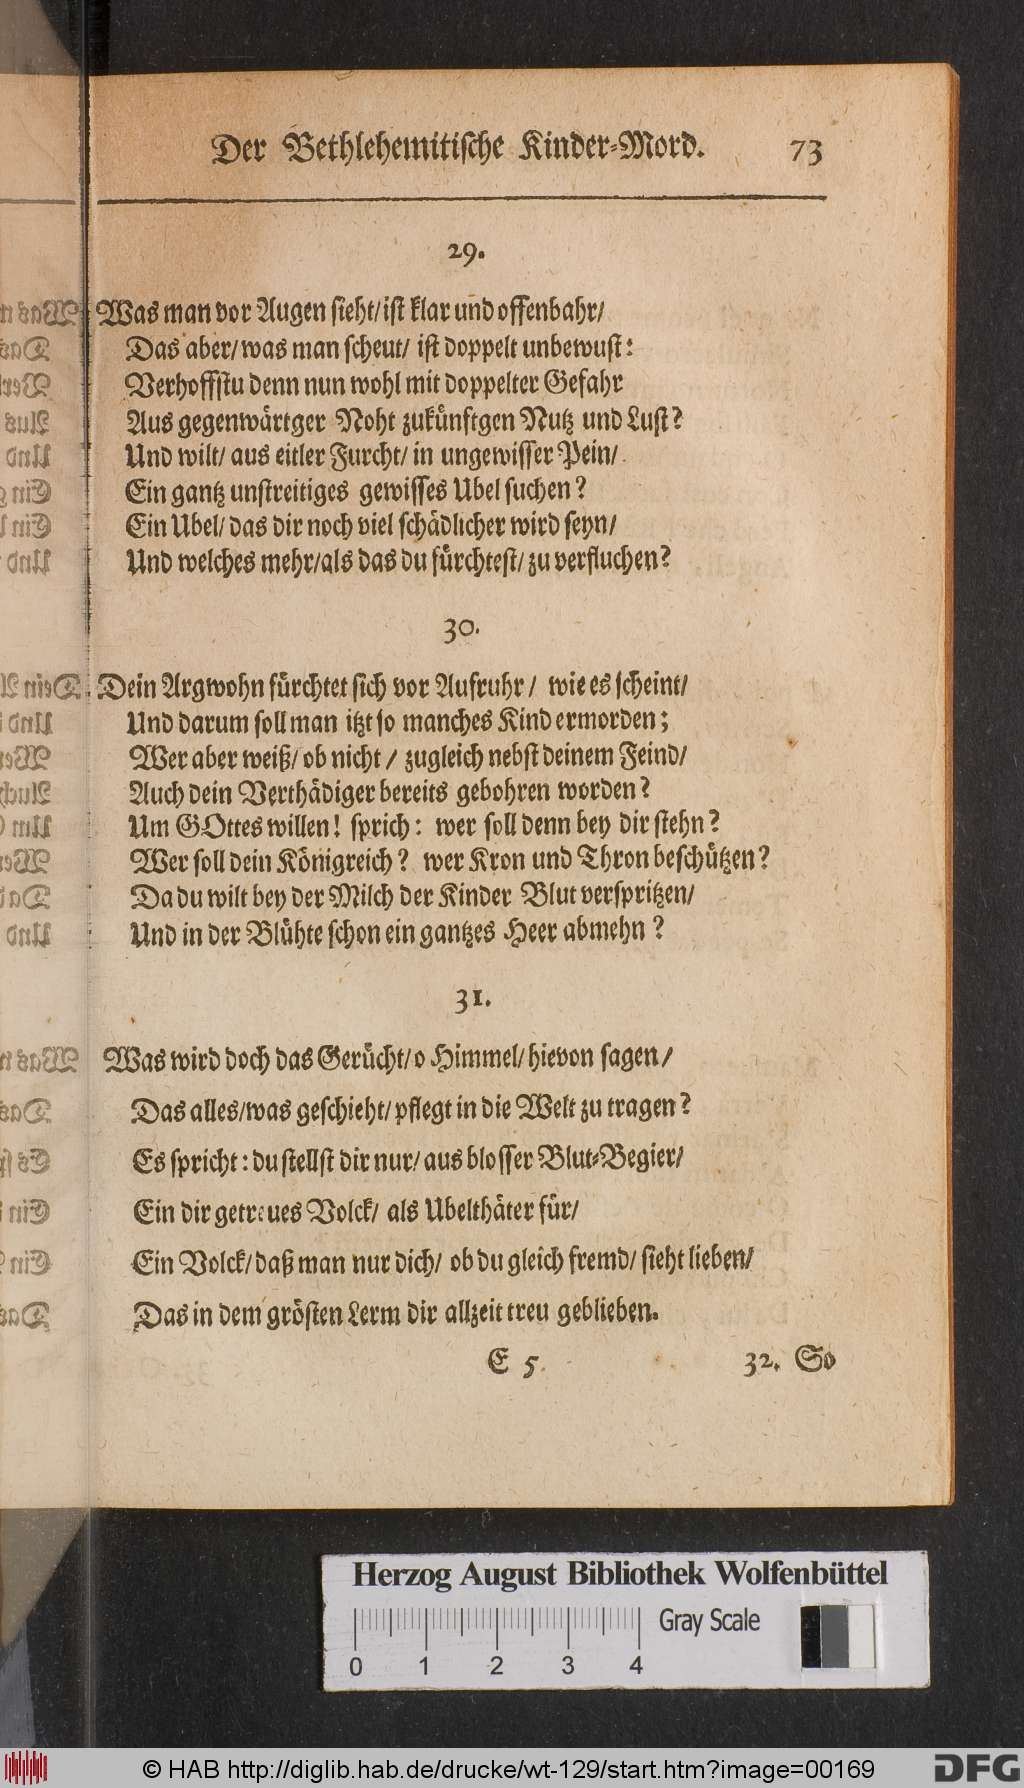 Der Bethlehemitische Kinder-Mord. 73
29.
Was man vor Augen sieht/ ist klar und offenbahr/
Das aber/ was man scheut/ ist doppelt unbewust:
Verhoffstu denn nun wohl mit doppelter Gefahr
Aus gegenwärtger Noht zukünftgen Nutz und Lust?
Und wilt/ aus eitler Furcht/ in ungewisser Pein/
Ein gantz unstreitiges gewisses Ubel suchen?
Ein Ubel/ das dir noch viel schädlicher wird seyn/
Und welches mehr/ als das du fürchtest/ zu verfluchen?
30.
Dein Argwohn fürchtet sich vor Aufruhr/ wie es scheint/
Und darum soll man itzt so manches Kind ermorden;
Wer aber weiß/ ob nicht/ zugleich nebst deinem Feind/
Auch dein Verthädiger bereits gebohren worden?
Um GOttes willen! sprich: wer soll denn bey dir stehn?
Wer soll dein Königreich? wer Kron und Thron beschützen?
Da du wilt bey der Milch der Kinder Blut verspritzen/
Und in der Blühte schon ein gantzes Heer abmehn?
31.
Was wird doch das Gerücht/ o Himmel/ hievon sagen/
Das alles/ was geschieht/ pflegt in die Welt zu tragen?
Es spricht: du stellst dir nur/ aus blosser Blut-Begier/
Ein dir getreues Volck/ als Ubelthäter für/
Ein Volck/ daß man nur dich/ ob du gleich fremd/ sieht lieben/
Das in dem grösten Lerm dir allzeit treu geblieben.
E 5 32. So
Herzog August Bibliothek Wolfenbüttel
Gray Scale
0 1 2 3 4
© HAB http://diglib.hab.de/drucke/wt-129/start.htm?image=00169
DFG